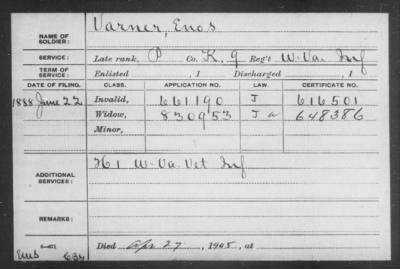 NAME OF SOLDIER: Varner, Enos
SERVICE: Late rank, P Co. K, 9 Reg't W. Va. Inf
TERM OF SERVICE: Enlisted , 1 Discharged , 1
DATE OF FILING. CLASS. APPLICATION NO. LAW. CERTIFICATE NO.
1888 June 22 Invalid, 661190 J 616501
Widow, 830953 J a 648386
Minor,
ADDITIONAL SERVICES: H 1 W. Va. Vet Inf
REMARKS:
Died Apr 27, 1905, at